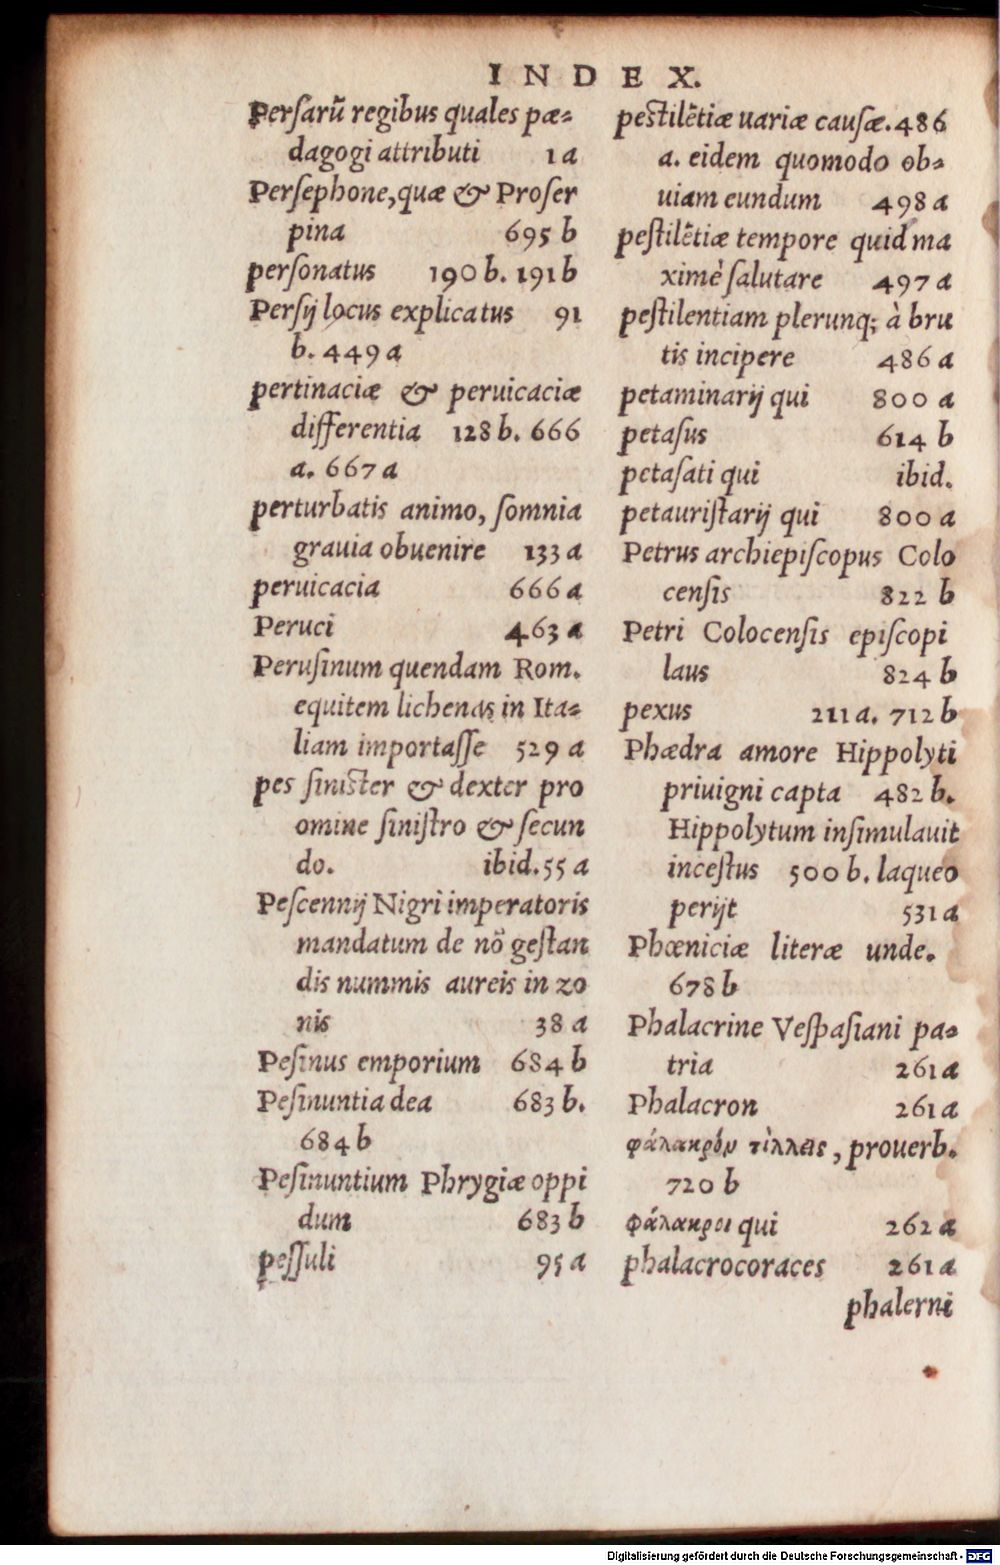 INDEX.
Perſarũ regibus quales pæ-
dagogi attributi 1 a
Perſephone, quæ & Proſer
pina 695 b
perſonatus 190 b. 191 b
Perſij locus explicatus 91
b. 449 a
pertinaciæ & peruicaciæ
differentia 128 b. 666
a. 667 a
perturbatis animo, ſomnia
grauia obuenire 133 a
peruicacia 666 a
Peruci 463 a
Peruſinum quendam Rom.
equitem lichenas in Ita-
liam importaſſe 529 a
pes ſiniſter & dexter pro
omine ſiniſtro & ſecun
do. ibid. 55 a
Peſcennij Nigri imperatoris
mandatum de nõ geſtan
dis nummis aureis in zo
nis 38 a
Peſinus emporium 684 b
Peſinuntia dea 683 b.
684 b
Peſinuntium Phrygiæ oppi
dum 683 b
peſſuli 95 a
peſtilẽtiæ uariæ cauſæ. 486
a. eidem quomodo ob-
uiam eundum 498 a
peſtilẽtiæ tempore quid ma
ximè ſalutare 497 a
peſtilentiam plerunq; à bru
tis incipere 486 a
petaminarij qui 800 a
petaſus 614 b
petaſati qui ibid.
petauriſtarij qui 800 a
Petrus archiepiſcopus Colo
cenſis 822 b
Petri Colocenſis epiſcopi
laus 824 b
pexus 211 a. 712 b
Phædra amore Hippolyti
priuigni capta 482 b.
Hippolytum inſimulauit
inceſtus 500 b. laqueo
perijt 531 a
Phœniciæ literæ unde.
678 b
Phalacrine Veſpaſiani pa-
tria 261 a
Phalacron 261 a
φάλακρὸν τίλλεις, prouerb.
720 b
φάλακροι qui 262 a
phalacrocoraces 261 a
phalerni
Digitalisierung gefördert durch die Deutsche Forschungsgemeinschaft - DFG